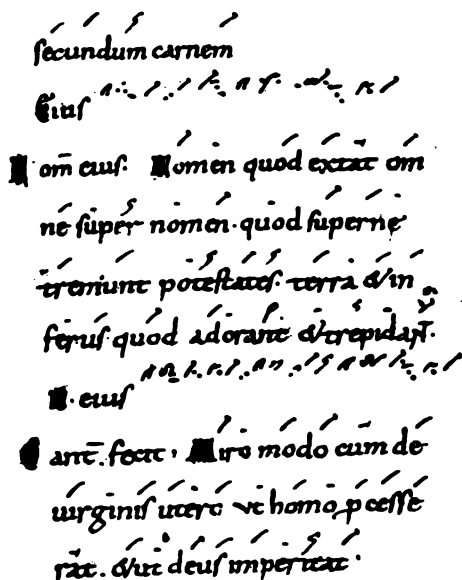 secundum carnem
Eius
Nom̄ eius. Nomen quod extat om
ne super nomen. quod superne
tremunt potestates. terra & in
ferus quod adorant & trepidant.
N. eius
ant̄. fecit. Miro modo cum de
uirginis utero ut homo pcesse
rat. & ut deus imperitat.